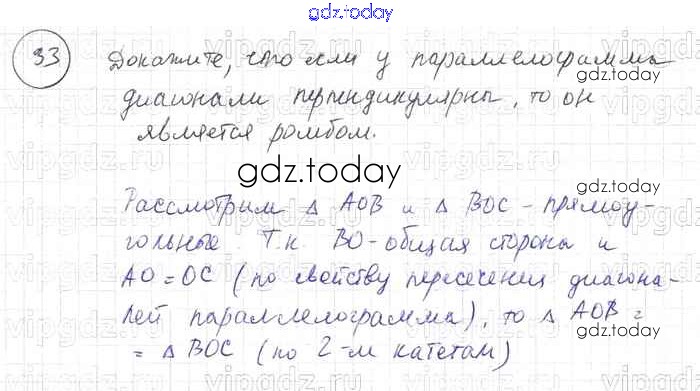 gdz.today
33 Докажите, что если у параллелограмма
gdz.today
диагонали перпендикулярны, то он
является ромбом.
gdz.today
gdz.today
Рассмотрим △ AOB и △ BOC - прямоу-
гольные. Т.к. BO - общая стороны и
AO = OC (по свойству пересечения диагона-
лей параллелограмма), то △ AOB =
gdz.today
= △ BOC (по 2-м катетам)